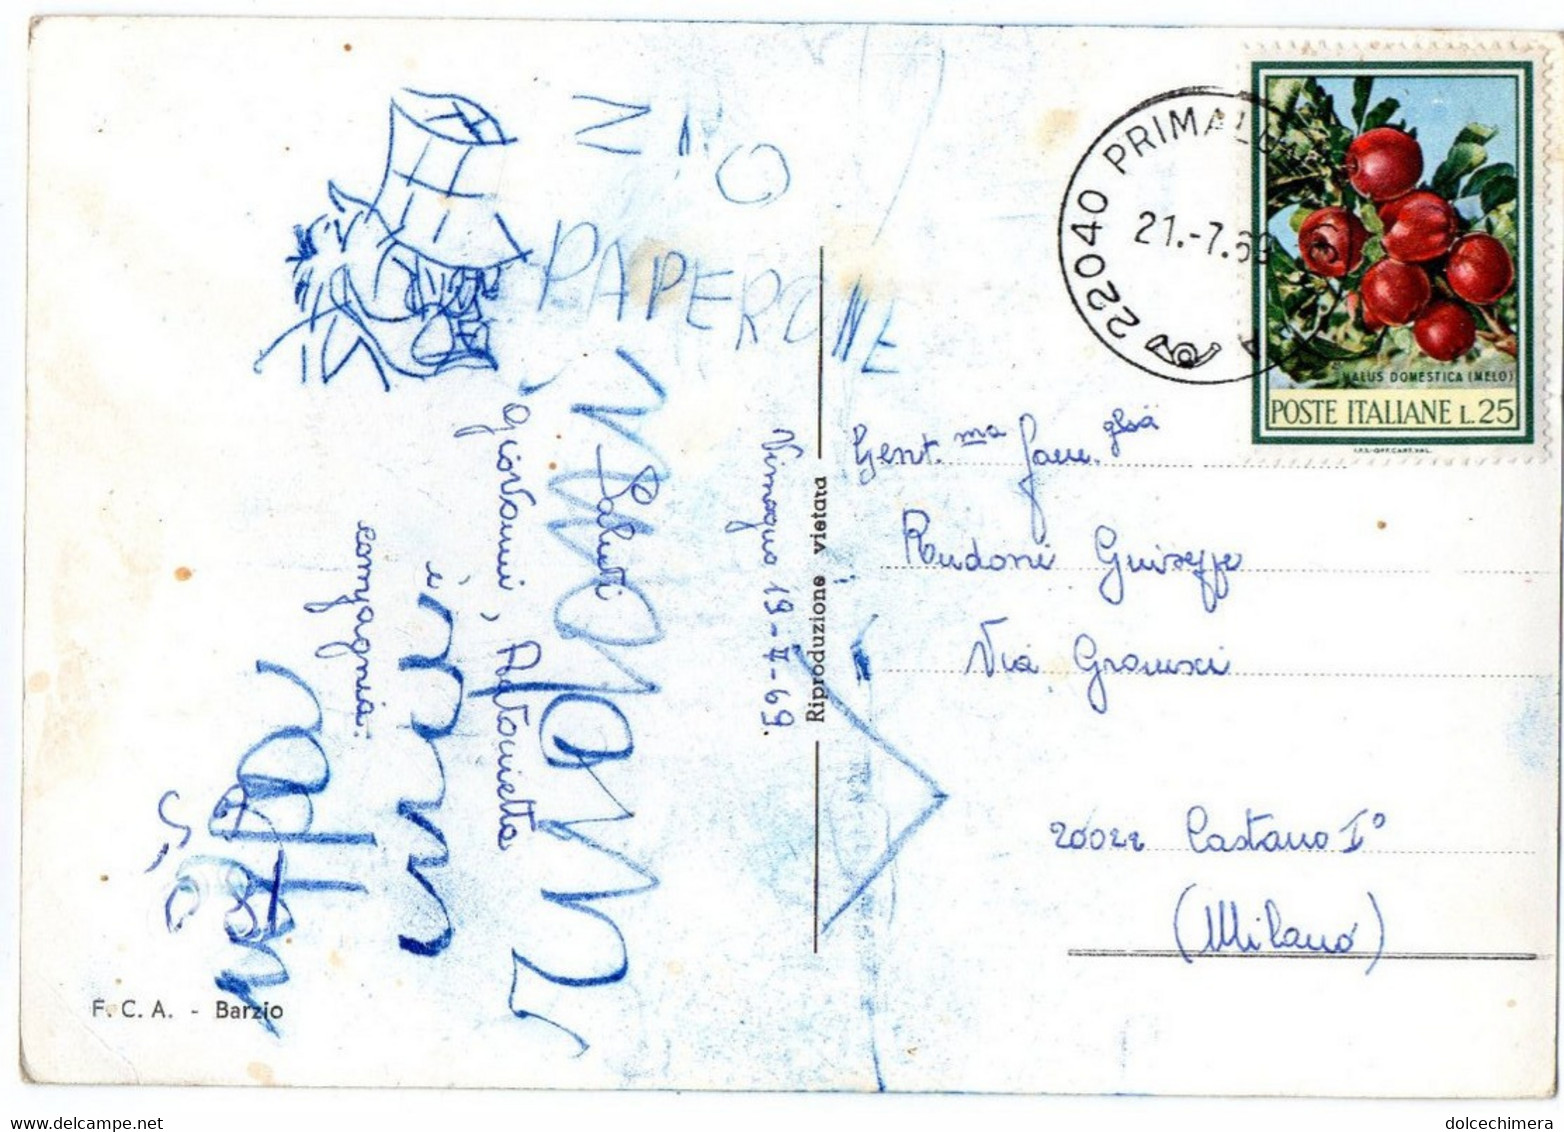 ZIO
PAPERONE
22040 PRIMALUNA
21.-7.69
MALUS DOMESTICA (MELO)
POSTE ITALIANE L.25
I.P.S.-OFF.CART.VAL.
Vimogno 19-V-69.
Saluti
Giovanni, Antonietta
e
compagnia.
Riproduzione vietata
Gent.ma Fam.glia
Rudoni Guiseppe
Via Gramsci
20022 Castano I°
(Milano)
F. C. A. - Barzio
dolcechimera